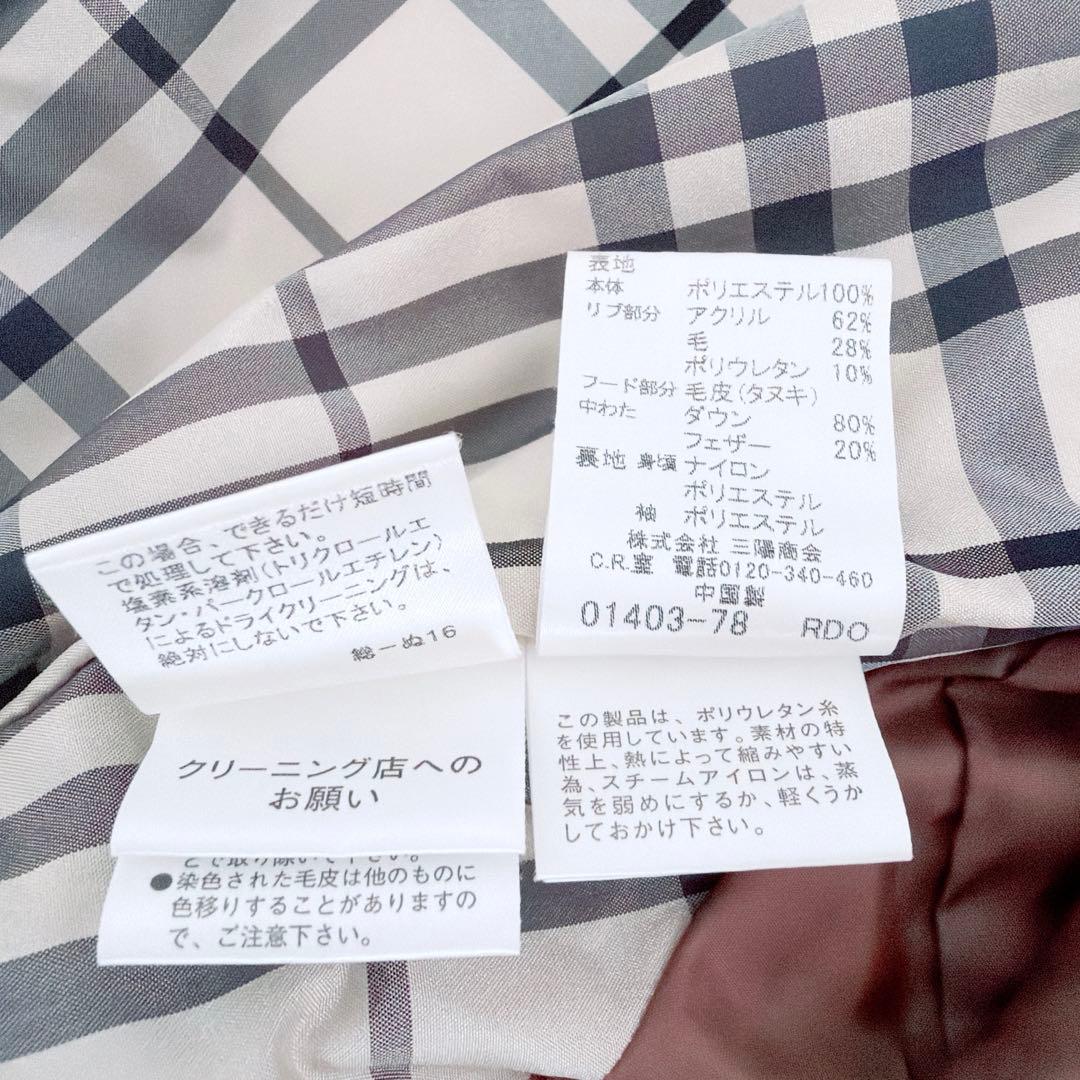 表地
本体 ポリエステル100%
リブ部分 アクリル 62%
毛 28%
ポリウレタン 10%
フード部分 毛皮(タヌキ)
中わた ダウン 80%
フェザー 20%
裏地 身頃 ナイロン
ポリエステル
袖 ポリエステル
株式会社 三陽商会
C.R.室 電話0120-340-460
中国製
01403-78 RDO
この場合、できるだけ短時間
で処理して下さい。
塩素系溶剤(トリクロールエ
タン・パークロールエチレン)
によるドライクリーニングは、
絶対にしないで下さい。
総ーぬ16
クリーニング店への
お願い
とで取り除いて下さい。
●染色された毛皮は他のものに
色移りすることがありますの
で、ご注意下さい。
この製品は、ポリウレタン糸
を使用しています。素材の特
性上、熱によって縮みやすい
為、スチームアイロンは、蒸
気を弱めにするか、軽くうか
しておかけ下さい。